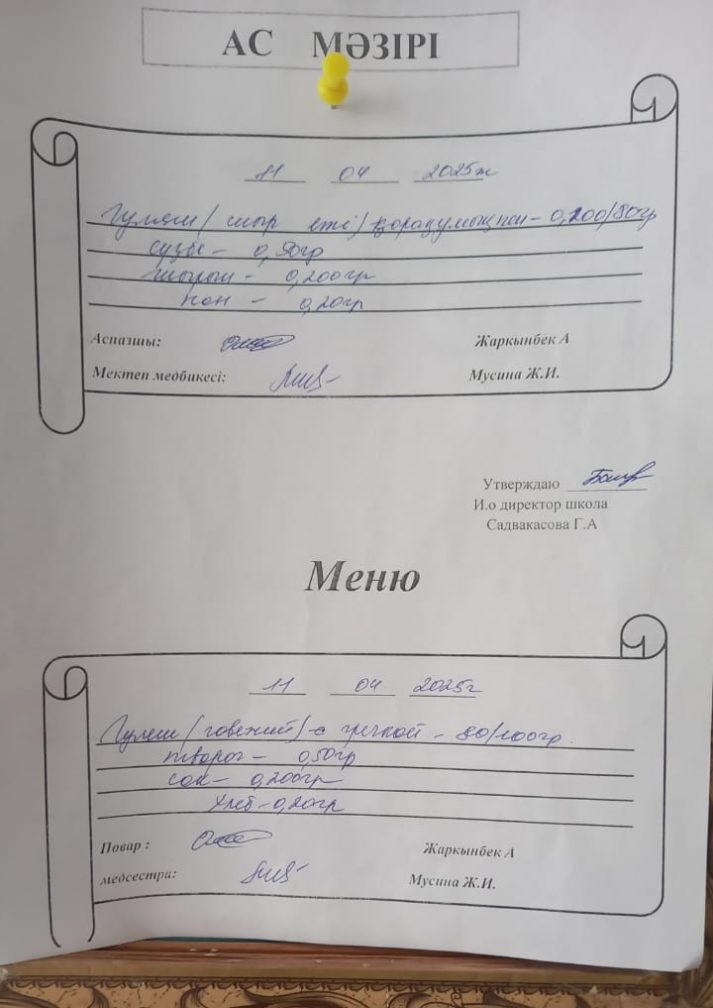 АС МӘЗІРІ
11 04 2025ж
Гуляш / сиыр еті / қарақұмықпен - 0,100/80гр
сүзбе - 0,50гр
шырын - 0,200гр
нан - 0,20гр
Аспазшы: Жаркынбек А
Мектеп медбикесі: Мусина Ж.И.
Утверждаю
И.о директор школа
Садвакасова Г.А
Меню
11 04 2025г
Гуляш / говежий / с гречкой - 80/100гр.
творог - 0,50гр
сок - 0,200гр
хлеб - 0,20гр
Повар : Жаркынбек А
медсестра: Мусина Ж.И.